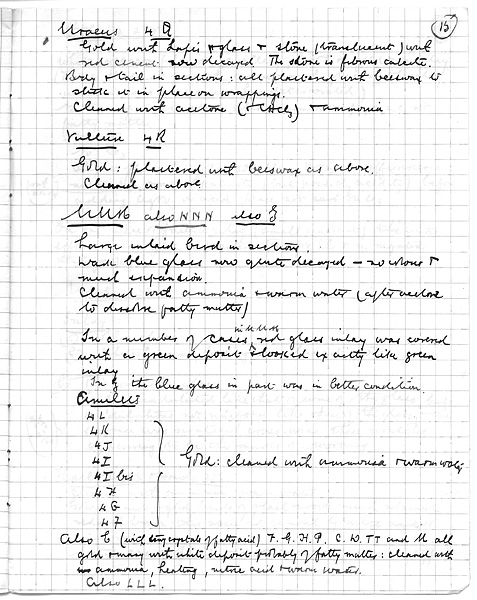 15
Uraeus 4 Q
Gold with lapis + glass + stone (translucent) with
red cement now decayed. The stone is fibrous calcite.
Body + tail in sections: all plastered with beeswax to
stick it in place on wrappings.
Cleaned with acetone (+ CHCl3) + ammonia
Vulture 4 R
Gold: plastered with beeswax as above.
Cleaned as above
MMM also NNN also
Large inlaid bird in sections.
Dark blue glass now quite decayed – no colour &
much expansion.
Cleaned with ammonia + warm water (after acetone
to dissolve fatty matter)
in MMM
In a number of cases red glass inlay was covered
with a green deposit & looked exactly like green
inlay
In the blue glass in part was in better condition.
Amulets
4 L
4 K
4 J
4 I
4 I bis
4 H
4 G
4 F
Gold: cleaned with ammonia + warm water
Also E (with tiny crystals of fatty acid) F. G. H. P. C. W. TT and U all
gold + many with white deposit probably of fatty matter: cleaned with
ammonia, heating, nitric acid + warm water.
Also LLL.